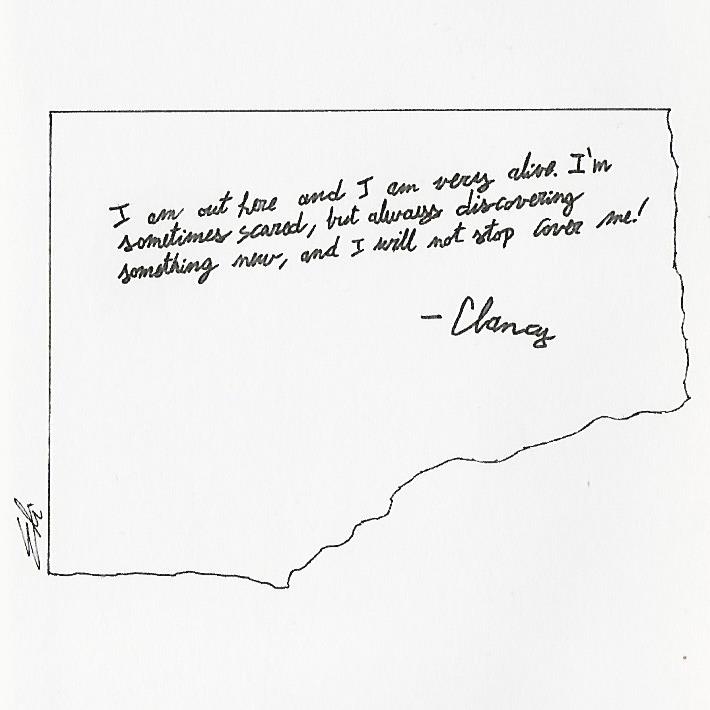 I am out here and I am very alive. I'm
sometimes scared, but always discovering
something new, and I will not stop cover me!
- Clancy